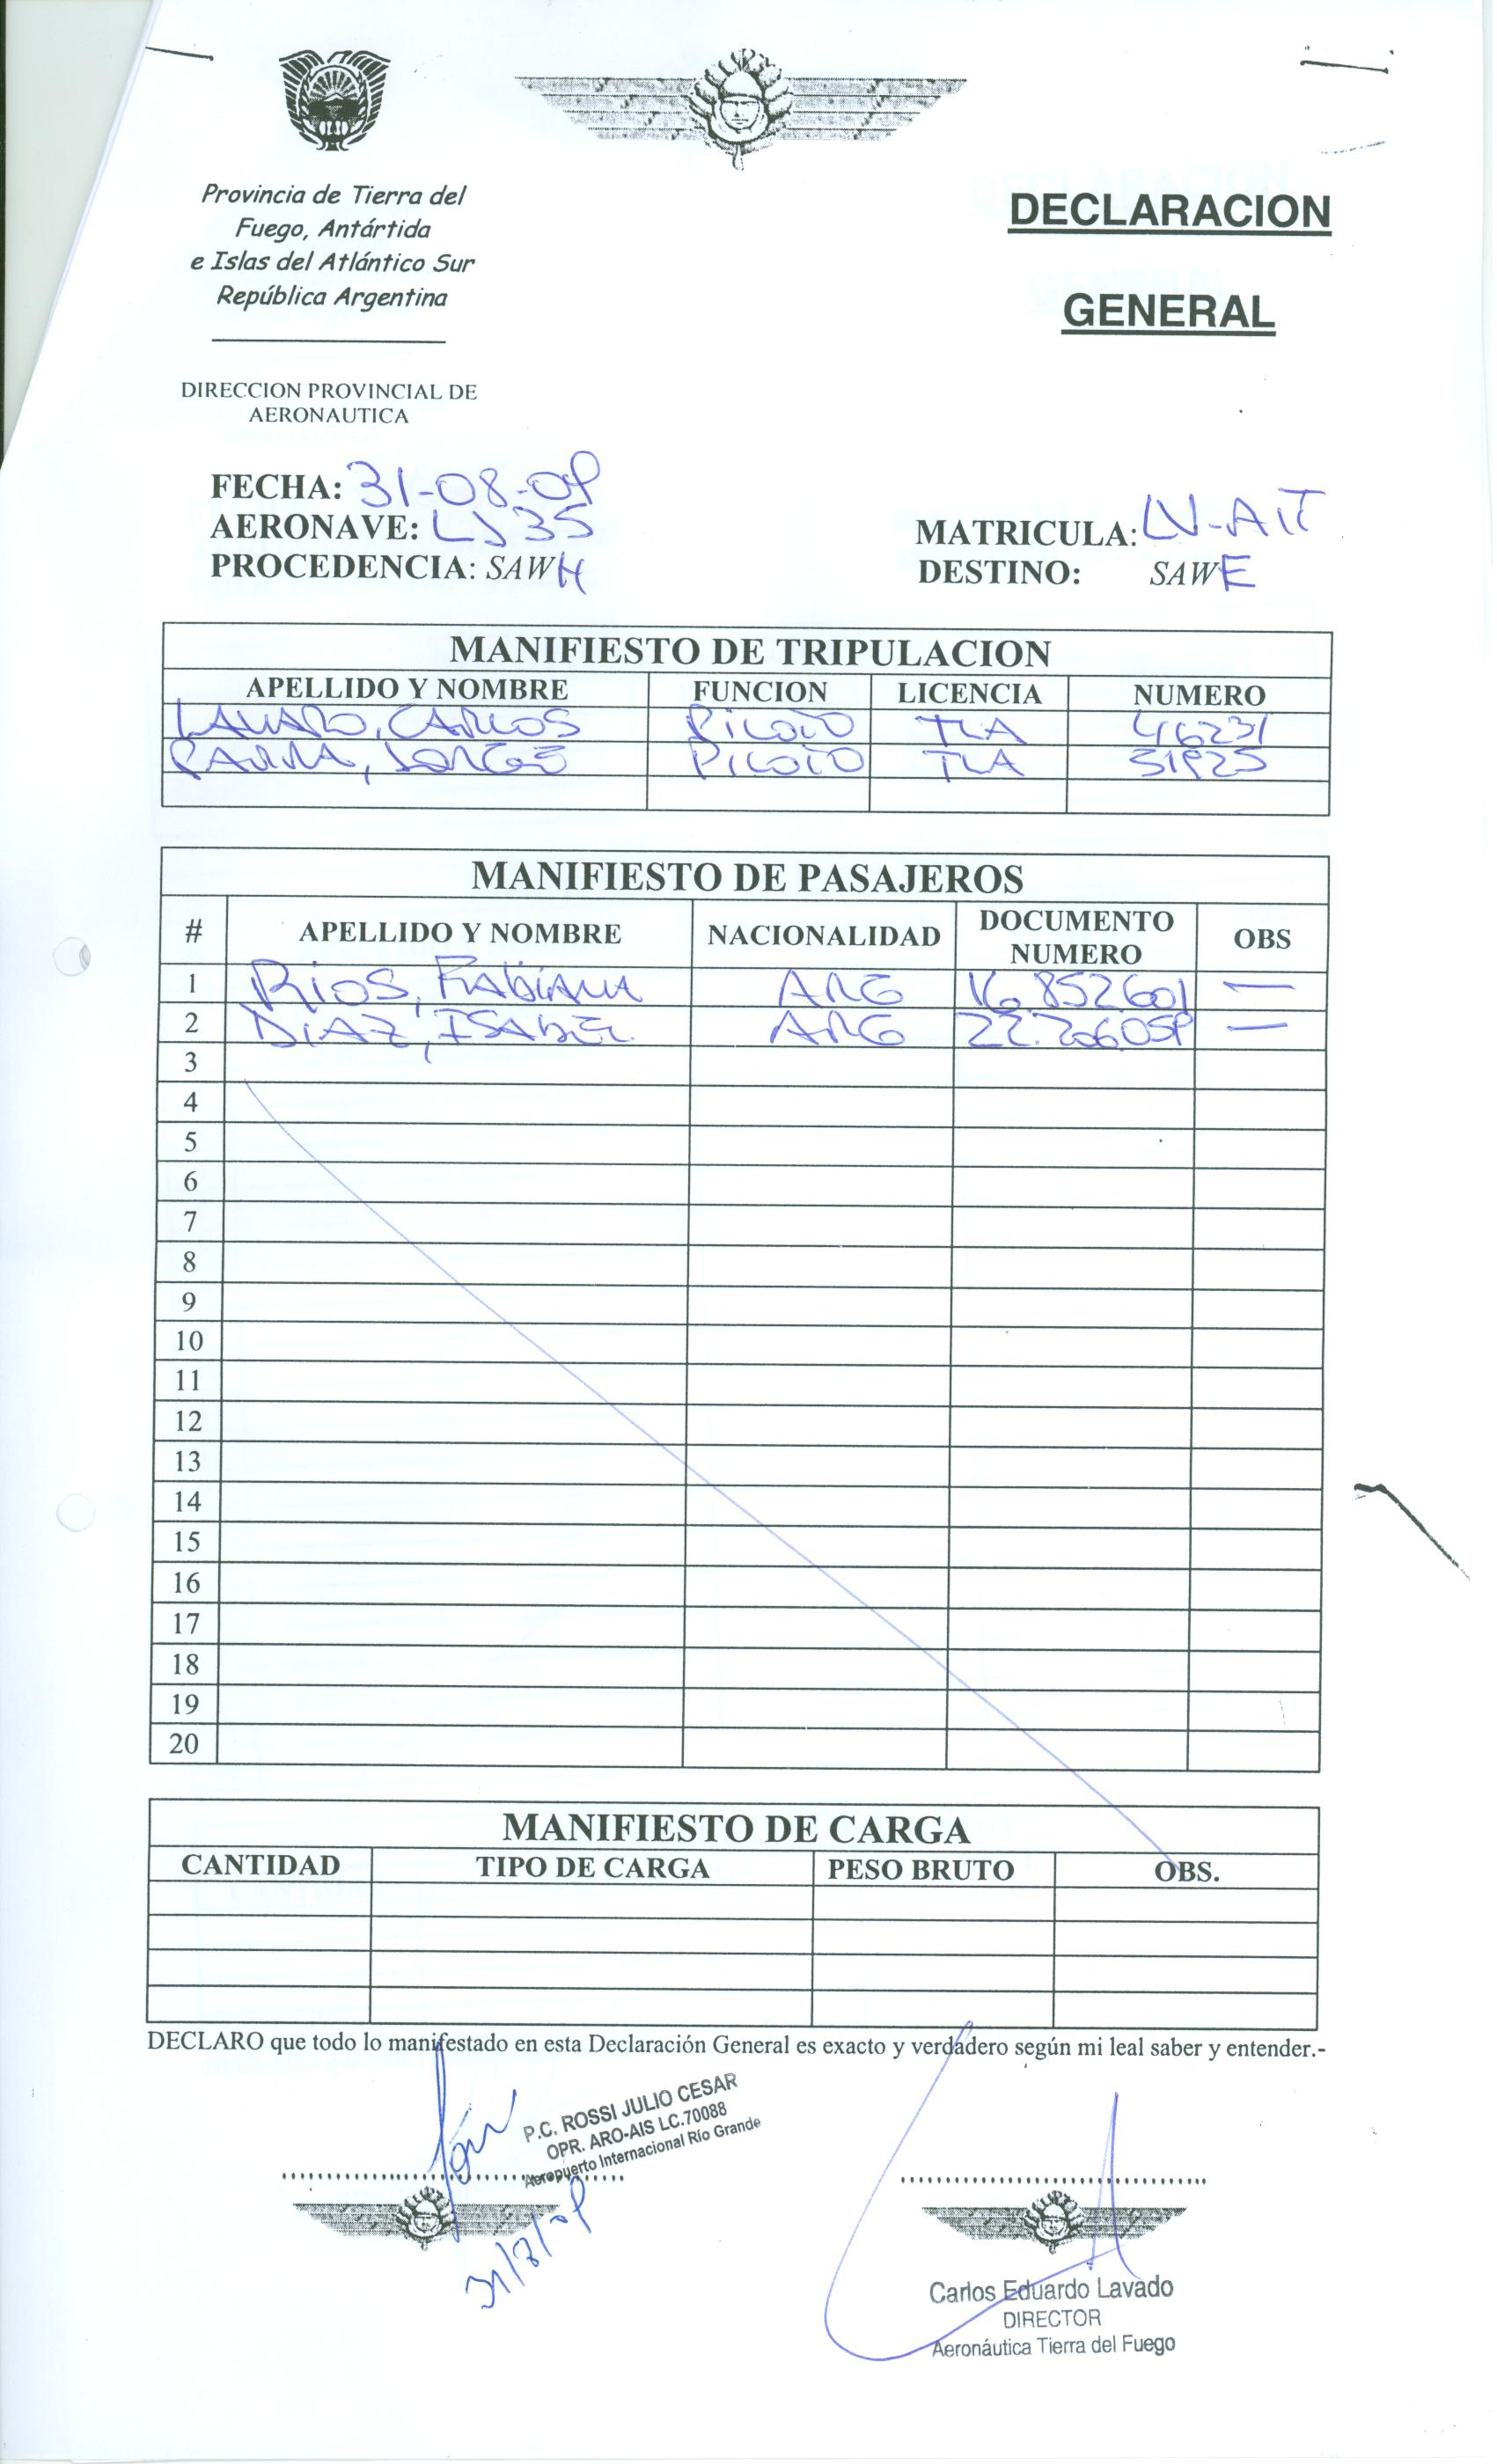 Provincia de Tierra del
Fuego, Antártida
e Islas del Atlántico Sur
República Argentina
DECLARACION
GENERAL
DIRECCION PROVINCIAL DE
AERONAUTICA
FECHA: 31-08-09
AERONAVE: LJ35
MATRICULA: LV-AIT
PROCEDENCIA: SAWH
DESTINO: SAWE
MANIFIESTO DE TRIPULACION
APELLIDO Y NOMBRE FUNCION LICENCIA NUMERO
LAVADO, CARLOS PILOTO TLA 46231
PARRA, JORGE PILOTO TLA
MANIFIESTO DE PASAJEROS
# APELLIDO Y NOMBRE NACIONALIDAD DOCUMENTO NUMERO OBS
1 RIOS, FABIANA ARG 16.852601 —
2 DIAZ, ISABEL ARG 22.206059 —
3
4
5
6
7
8
9
10
11
12
13
14
15
16
17
18
19
20
MANIFIESTO DE CARGA
CANTIDAD TIPO DE CARGA PESO BRUTO OBS.
DECLARO que todo lo manifestado en esta Declaración General es exacto y verdadero según mi leal saber y entender.-
P.C. ROSSI JULIO CESAR
OPR. ARO-AIS LC.70088
Aeropuerto Internacional Río Grande
31/8/09
Carlos Eduardo Lavado
DIRECTOR
Aeronáutica Tierra del Fuego